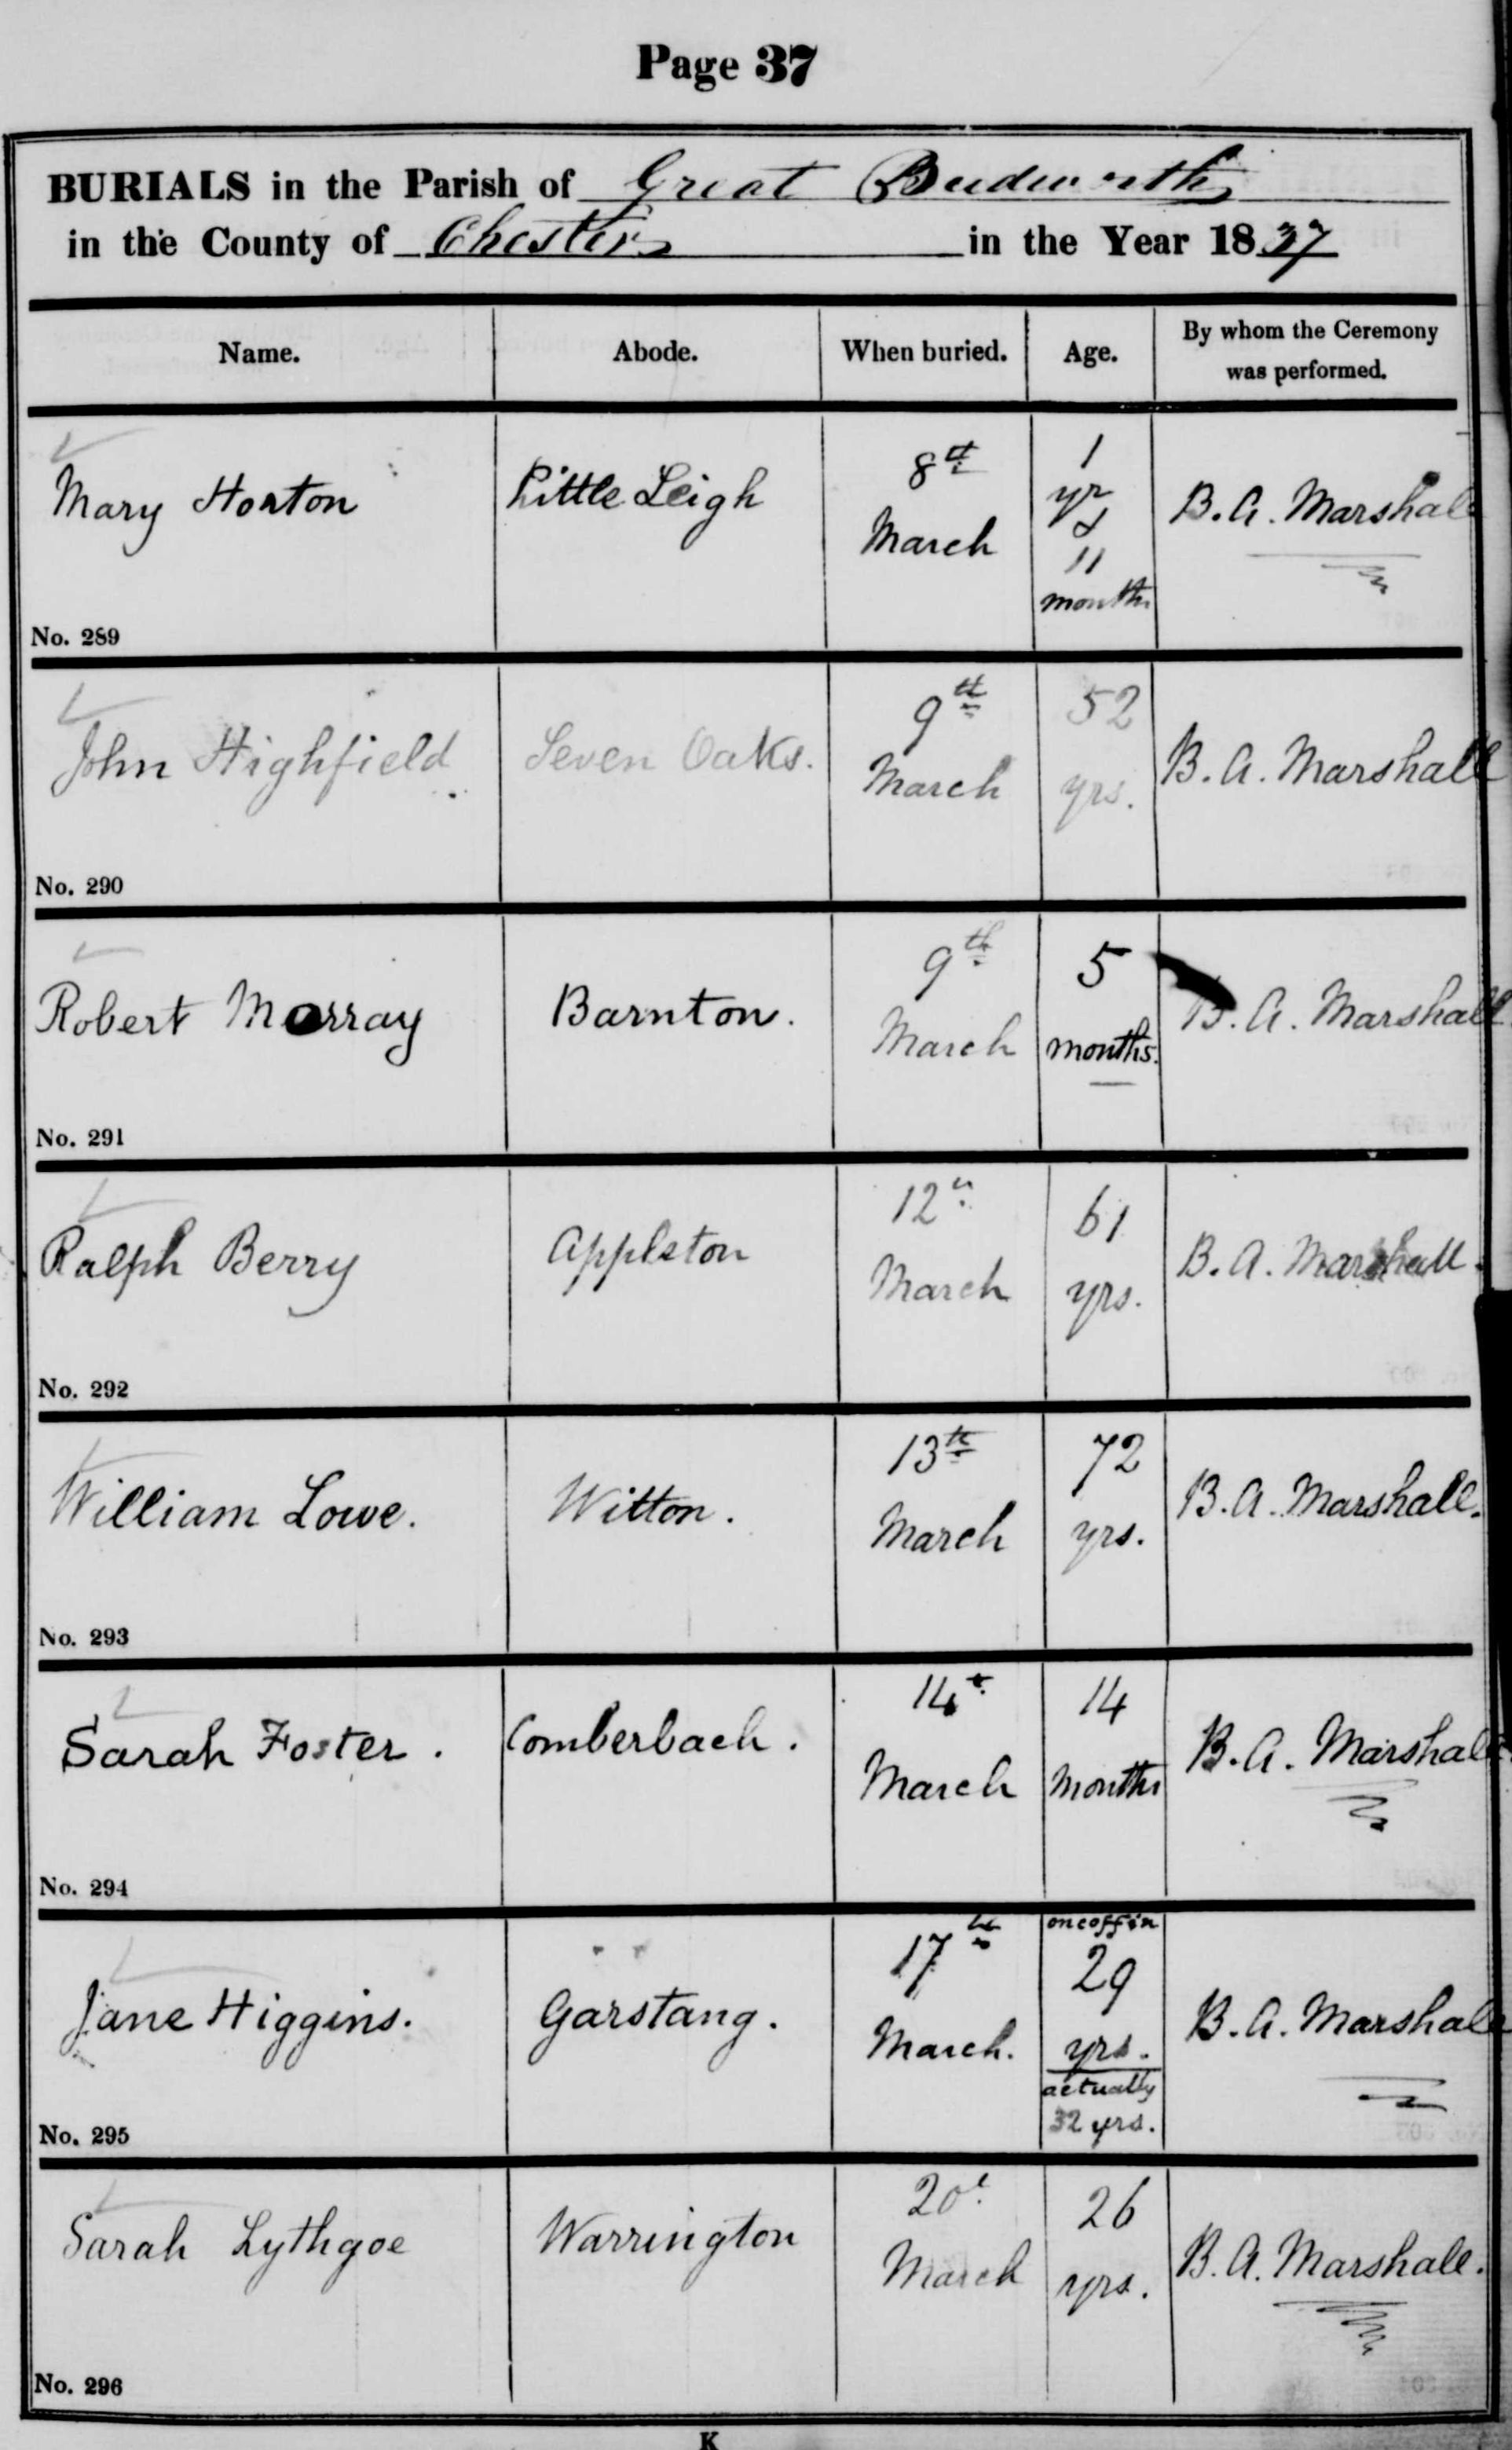 Page 37
BURIALS in the Parish of Great Budworth
in the County of Chester in the Year 1837
Name. Abode. When buried. Age. By whom the Ceremony was performed.
Mary Horton Little Leigh 8th March 1 yr & 11 months B. A. Marshall
No. 289
John Highfield Seven Oaks. 9th March 52 yrs. B. A. Marshall
No. 290
Robert Morray Barnton. 9th March 5 months. B. A. Marshall
No. 291
Ralph Berry Appleton 12th March 61 yrs. B. A. Marshall.
No. 292
William Lowe. Witton. 13th March 72 yrs. B. A. Marshall.
No. 293
Sarah Foster. Comberbach. 14th March 14 Months B. A. Marshall
No. 294
Jane Higgins. Garstang. 17th March. on coffin 29 yrs. actually 32 yrs. B. A. Marshall
No. 295
Sarah Lythgoe Warrington 20th March 26 yrs. B. A. Marshall.
No. 296
K